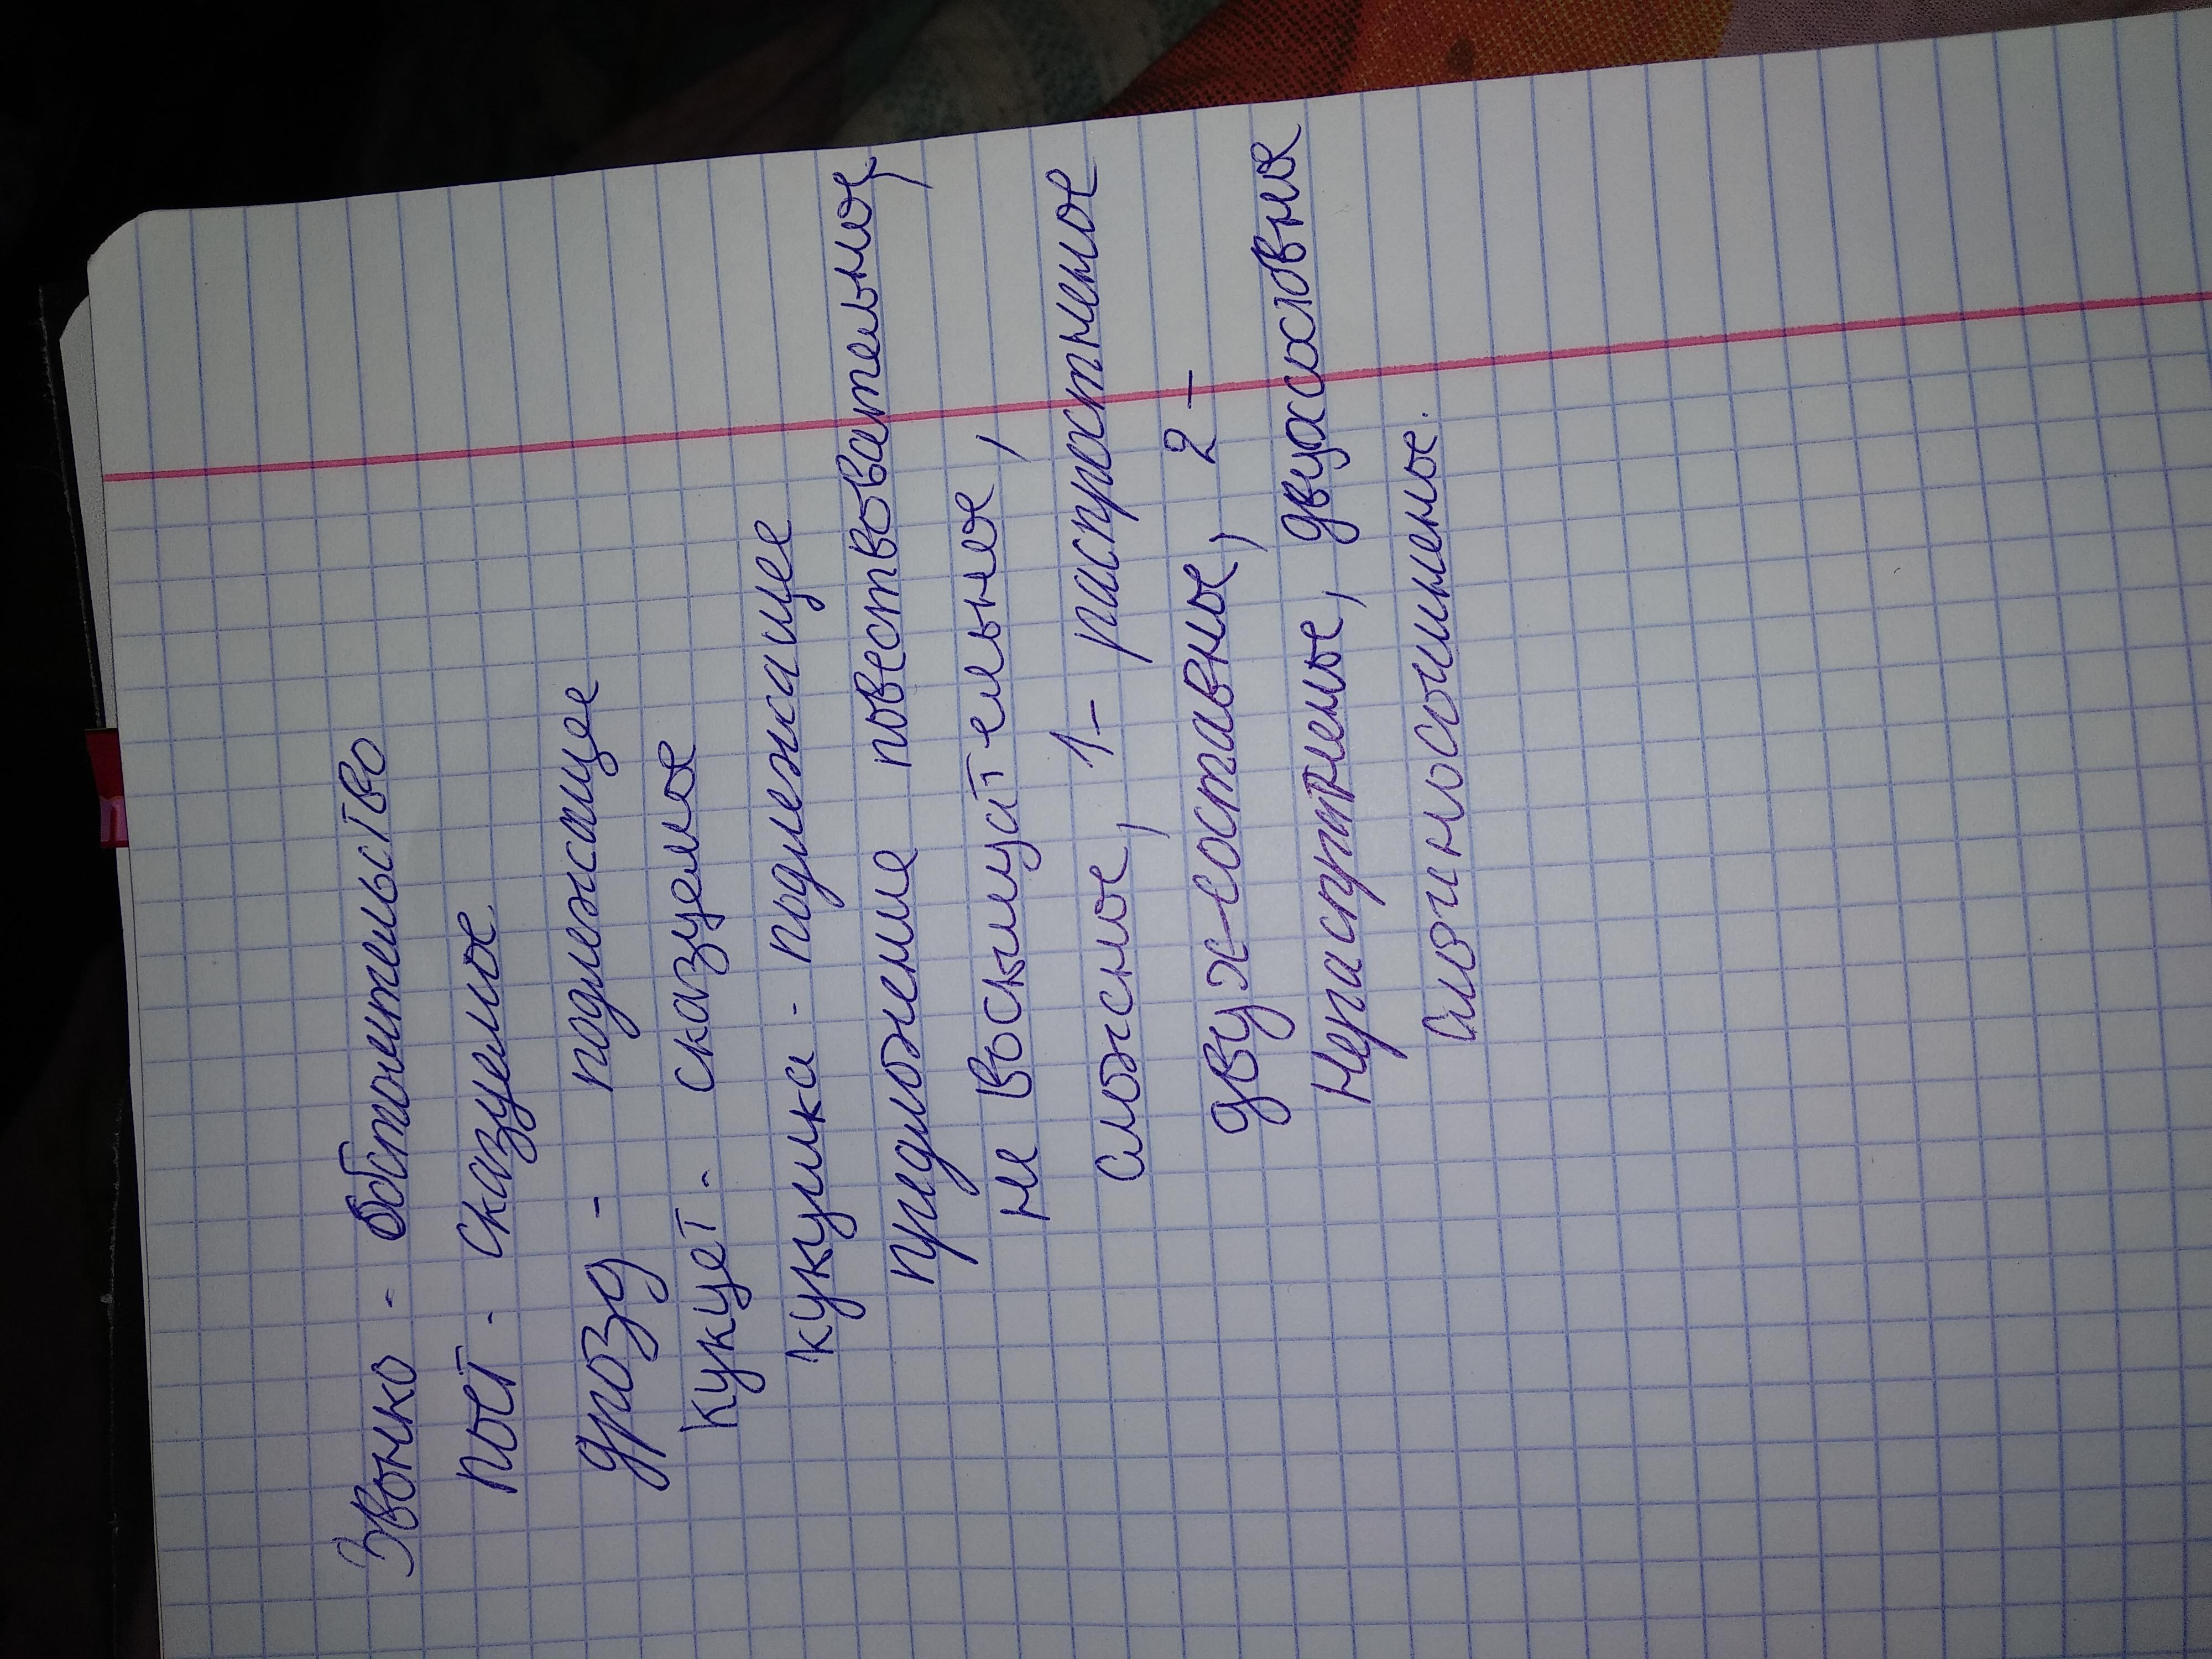 Звонко - обстоительство
поёт - сказуемое
дрозд - подлежащее
Кукует - сказуемое
кукушка - подлежащее
предложение повествовательное,
не воскицательное,
сложное, 1- распростненое
двух-составное, 2-
Нераспртненое, двухсоставное